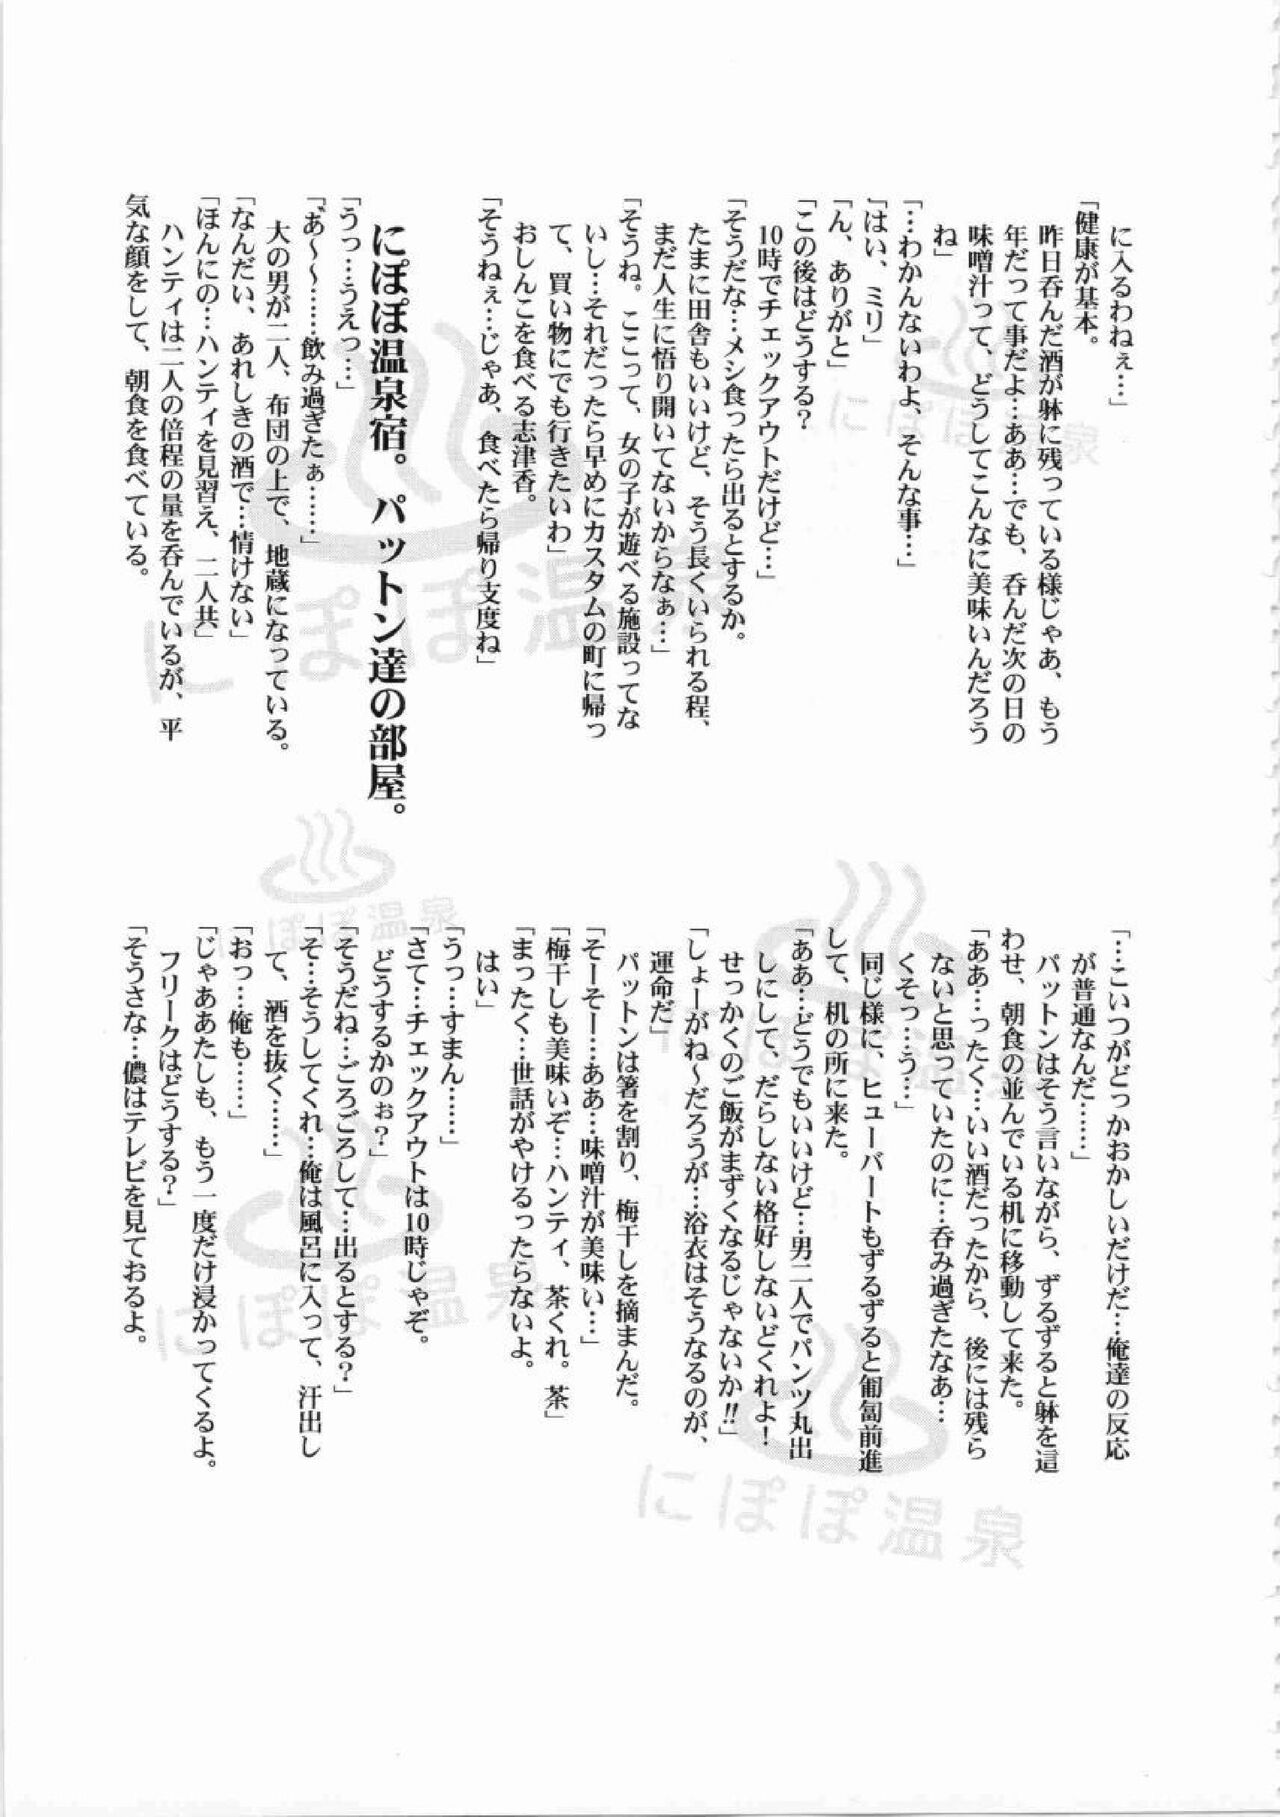 に入るわねぇ…」
「健康が基本。
昨日呑んだ酒が躰に残っている様じゃあ、もう
年だって事だよ…ああ…でも、呑んだ次の日の
味噌汁って、どうしてこんなに美味いんだろう
ね」
「…わかんないわよ、そんな事…」
「はい、ミリ」
「ん、ありがと」
「この後はどうする？
10時でチェックアウトだけど…」
「そうだな…メシ食ったら出るとするか。
たまに田舎もいいけど、そう長くいられる程、
まだ人生に悟り開いてないからなぁ…」
「そうね。ここって、女の子が遊べる施設ってな
いし…それだったら早めにカスタムの町に帰っ
て、買い物にでも行きたいわ」
おしんこを食べる志津香。
「そうねぇ…じゃあ、食べたら帰り支度ね」
にぽぽ温泉宿。パットン達の部屋。
「うっ…うえっ…」
「あ゛～～……飲み過ぎたぁ……」
大の男が二人、布団の上で、地蔵になっている。
「なんだい、あれしきの酒で…情けない」
「ほんにの…ハンティを見習え、二人共」
ハンティは二人の倍程の量を呑んでいるが、平
気な顔をして、朝食を食べている。
「…こいつがどっかおかしいだけだ…俺達の反応
が普通なんだ……」
パットンはそう言いながら、ずるずると躰を這
わせ、朝食の並んでいる机に移動して来た。
「ああ…ったく…いい酒だったから、後には残ら
ないと思っていたのに…呑み過ぎたなあ…
くそっ…う…」
同じ様に、ヒューバートもずるずると匍匐前進
して、机の所に来た。
「ああ…どうでもいいけど…男二人でパンツ丸出
しにして、だらしない格好しないどくれよ！
せっかくのご飯がまずくなるじゃないか!!」
「しょーがね～だろうが…浴衣はそうなるのが、
運命だ」
パットンは箸を割り、梅干しを摘まんだ。
「そーそー…ああ…味噌汁が美味い…」
「梅干しも美味いぞ…ハンティ、茶くれ。茶」
「まったく…世話がやけるったらないよ。
はい」
「うっ…すまん……」
「さて…チェックアウトは10時じゃぞ。
どうするかのぉ？」
「そうだね…ごろごろして…出るとする？」
「そ…そうしてくれ…俺は風呂に入って、汗出し
て、酒を抜く……」
「おっ…俺も……」
「じゃああたしも、もう一度だけ浸かってくるよ。
フリークはどうする？」
「そうさな…儂はテレビを見ておるよ。
にぽぽ温泉
にぽぽ温泉
にぽぽ温泉
にぽぽ温泉
にぽぽ温泉
にぽぽ温泉